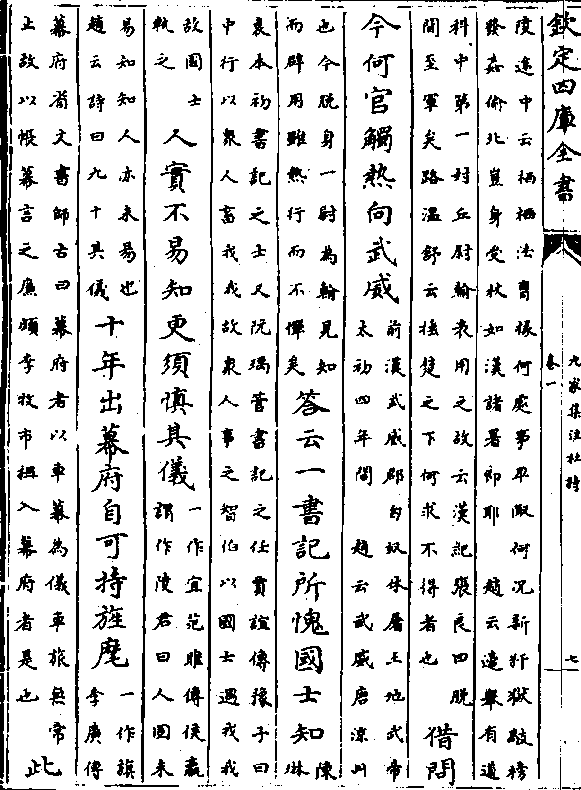 欽定四庫全書
卷一
九家集注杜詩
七
度追中云栖栖法曹掾何處事卑陬何況新犴獄敲搒
發姦偷北皇身受杖如漢諸署郎耶 趙云遠舉有道
科中第一封丘尉翰表用之故云漢紀張良曰脫
間至軍矣路溫舒云棰楚之下何求不得者也
借問
今何官觸熱向武威
前漢武威郡匈奴休屠王地武帝
太初四年開 趙云武威唐涼州
也今脫身一尉為翰見知
而辟用雖熱行而不憚矣
答云一書記所愧國士知
陳
琳
袁本初書記之士又阮瑀管書記之任賈誼傳豫子曰
中行以衆人畜我我故衆人事之智伯以國士遇我我
故國士
報之
人實不易知更須慎其儀
一作宜范雎傳侯嬴
謂作陵君曰人固未
易知知人亦未易也
趙云詩曰九十其儀
十年出幕府自可持旌麾
一作旗
李廣傳
幕府省文書師古曰幕府者以車幕為儀車旅無常
上故以帳幕言之廉頗李牧市租入幕府者是也
此